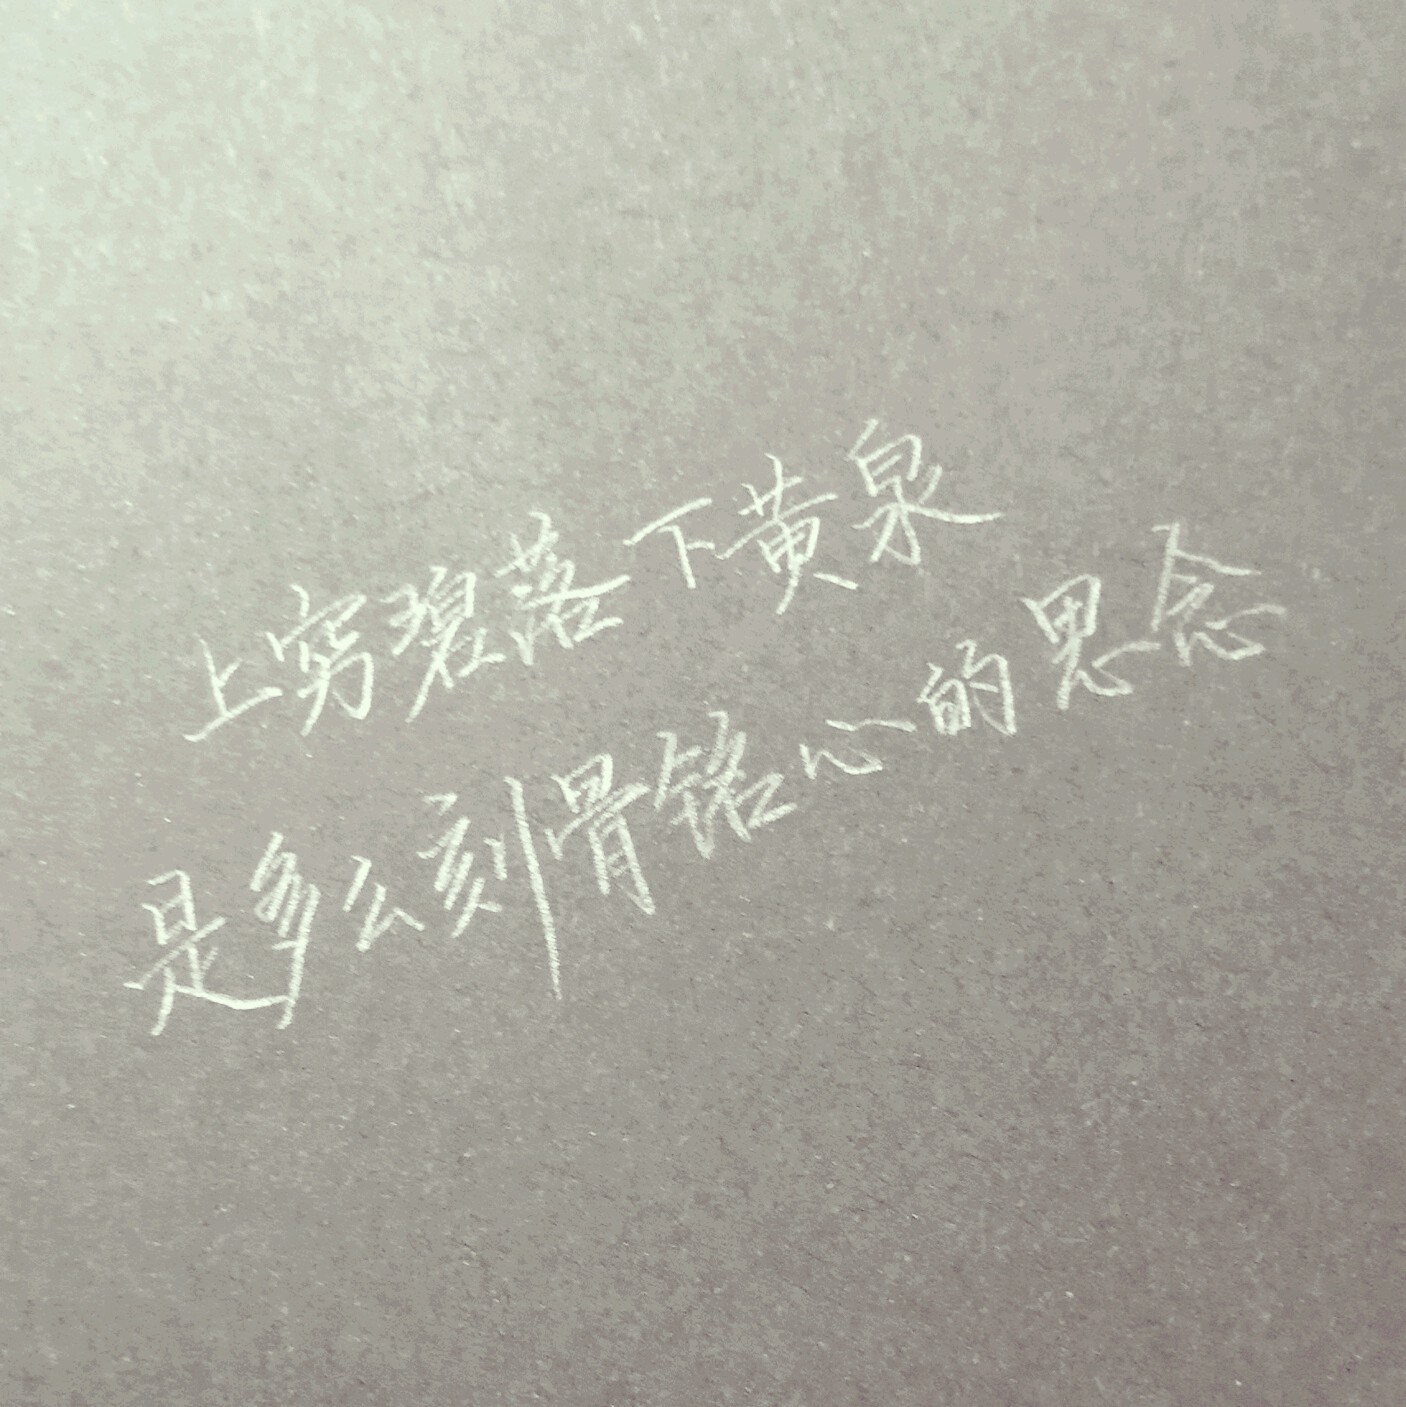 上穷碧落下黄泉
是多么刻骨铭心的思念